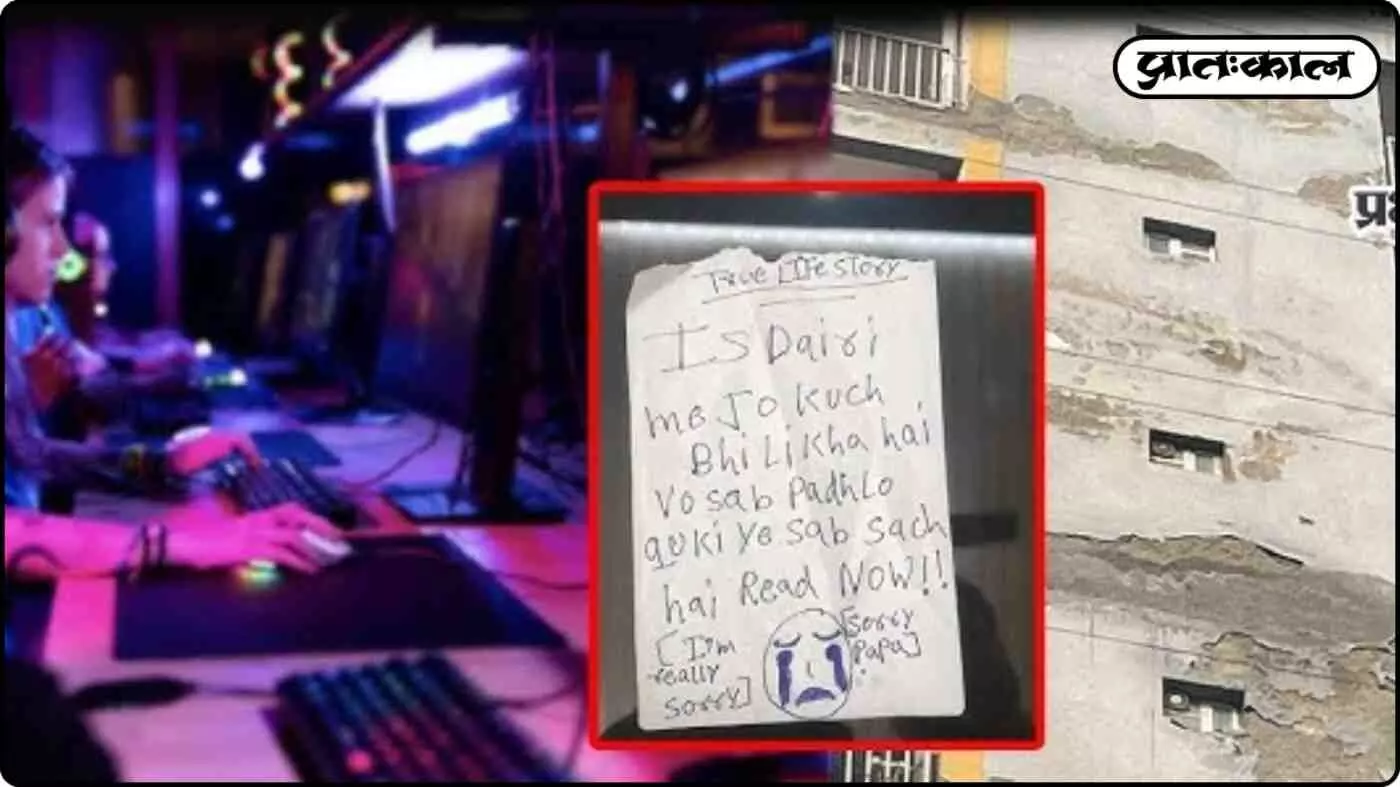 प्रातःकाल
प्र
True Life story
Is Dairi
me Jo kuch
Bhi Likha hai
Vo sab Padhlo
quki ye sab sach
hai Read NOW!!
[I'm
really
sorry]
[sorry
Papa]